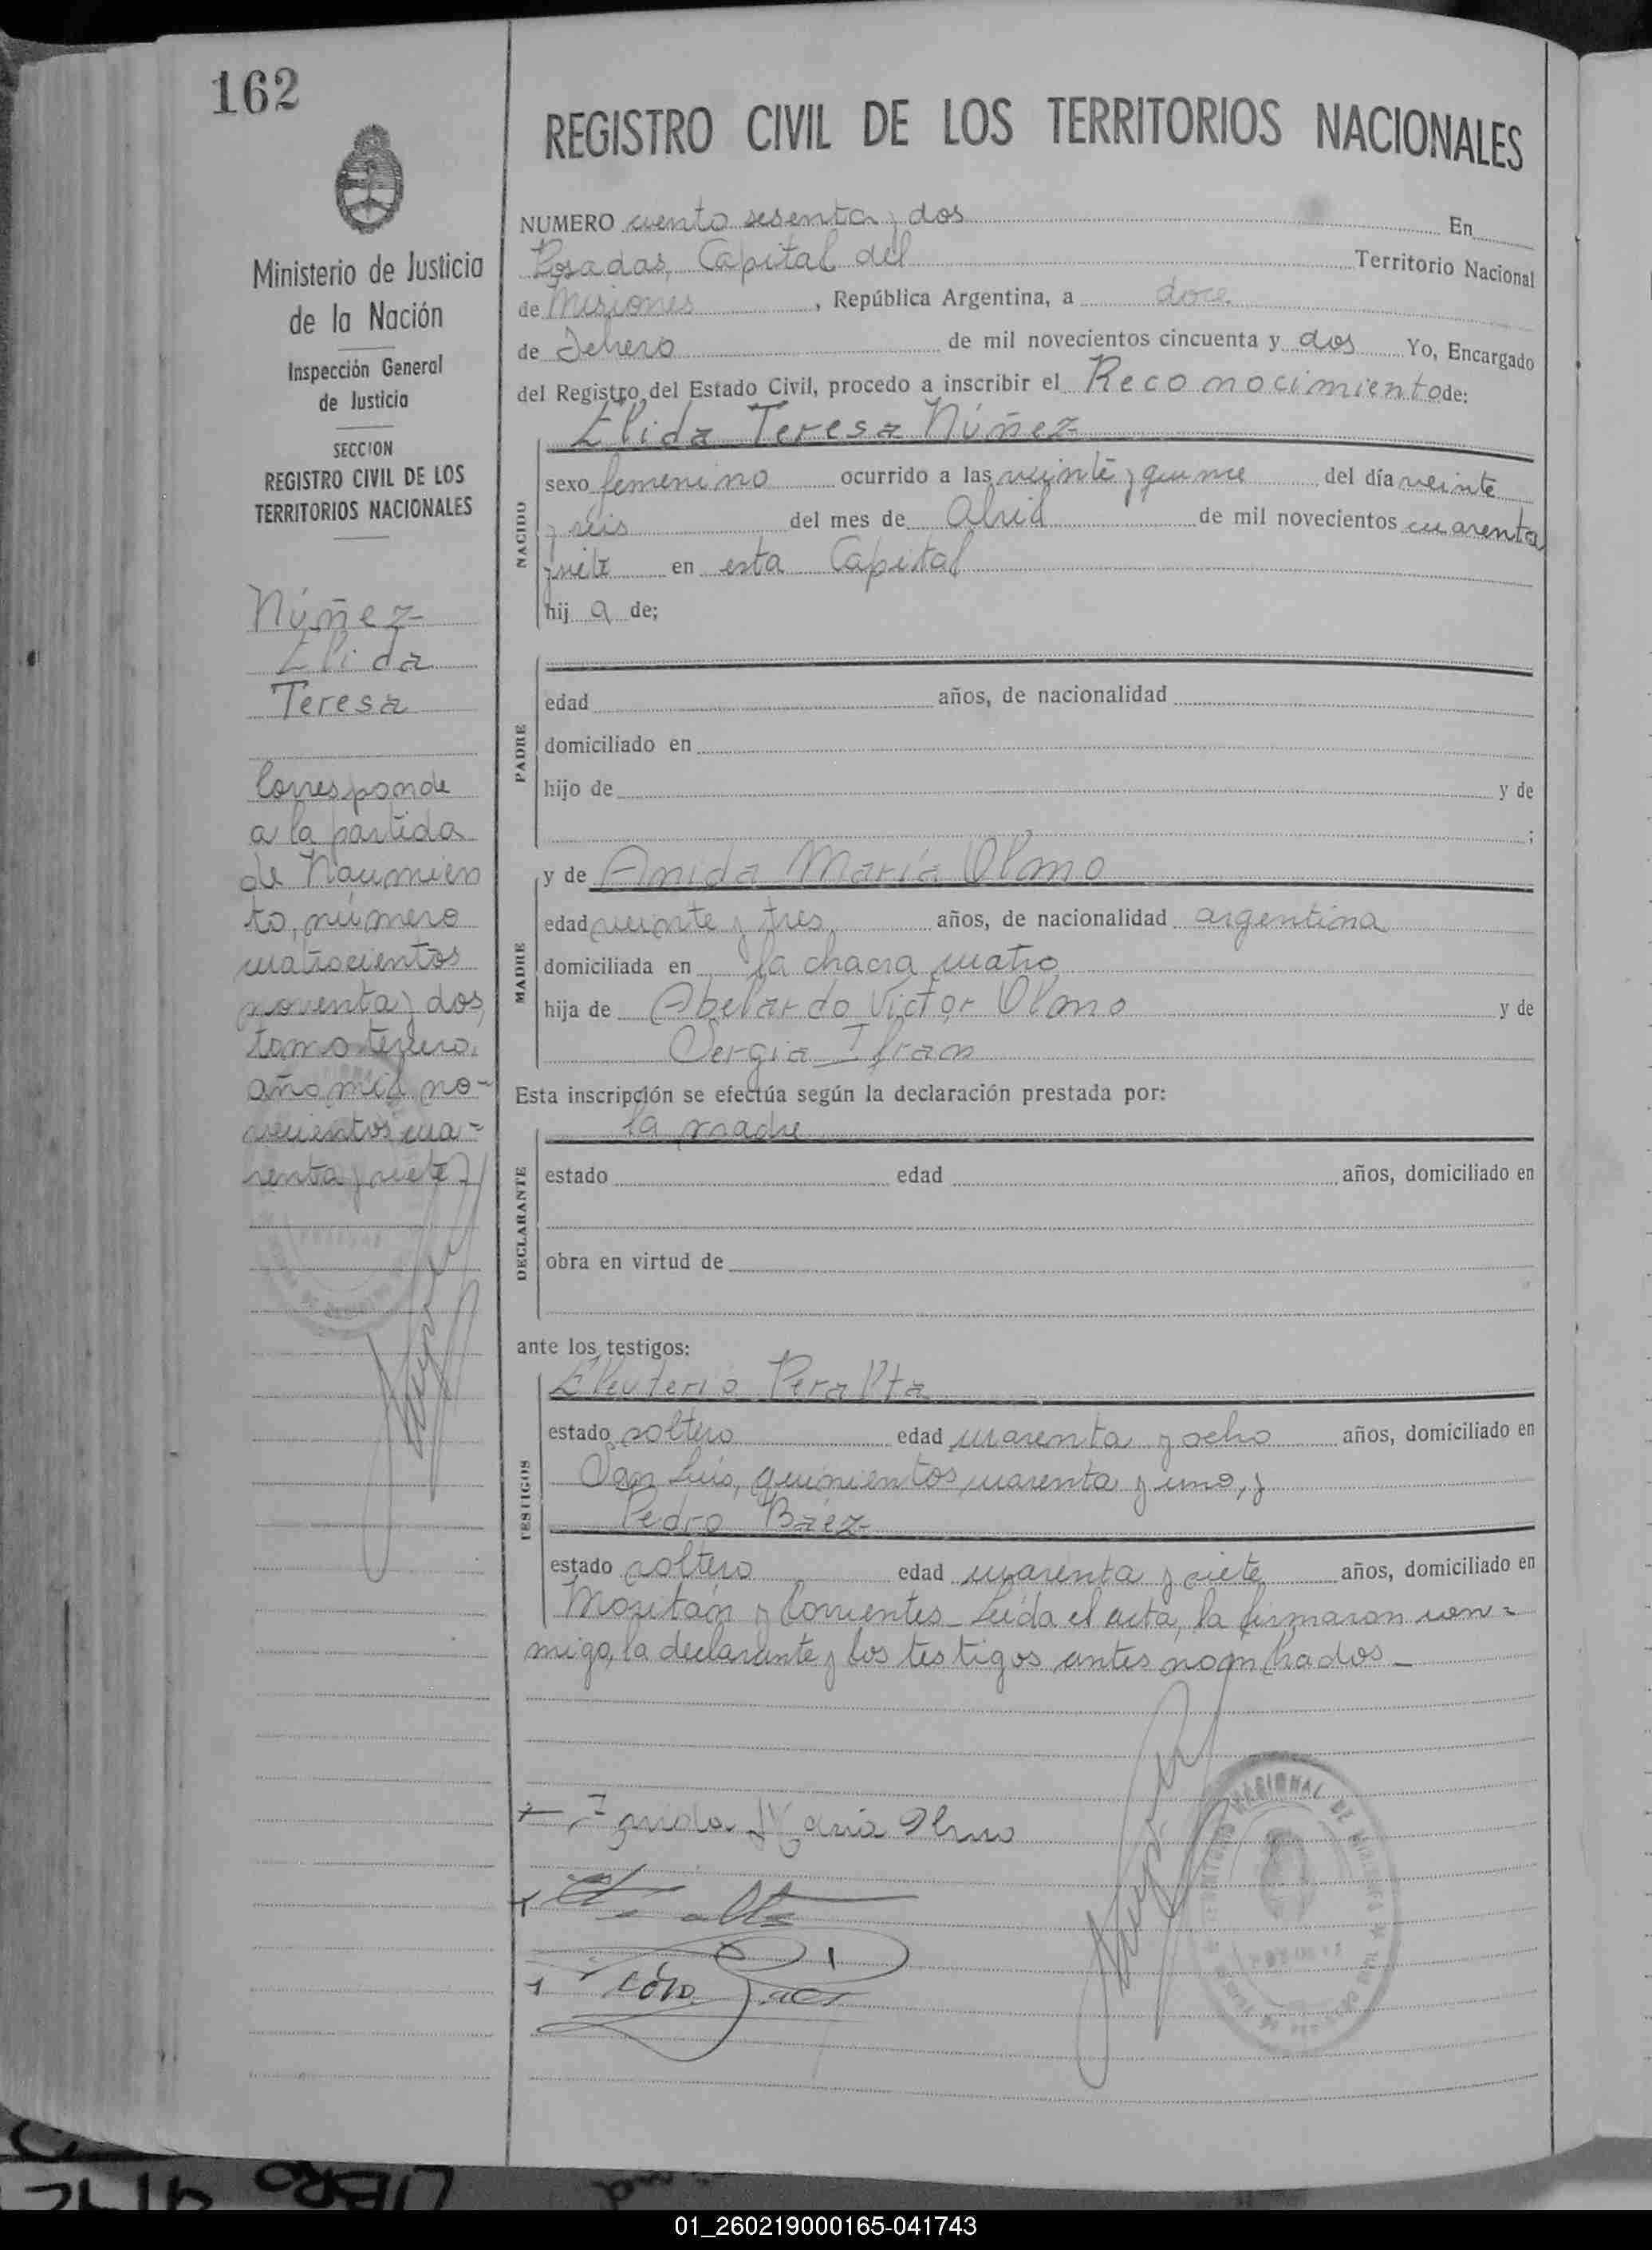 162
Ministerio de Justicia
de la Nación
Inspección General
de Justicia
SECCION
REGISTRO CIVIL DE LOS
TERRITORIOS NACIONALES
Núñez
Elida
Teresa
Corresponde
a la partida
de Nacimien
to, número
cuatrocientos
noventa y dos,
tomo tercero,
año mil no-
vecientos cua-
renta y siete
REGISTRO CIVIL DE LOS TERRITORIOS NACIONALES
NUMERO ciento sesenta y dos En
Posadas, Capital del Territorio Nacional
de Misiones, República Argentina, a doce
de Febrero de mil novecientos cincuenta y dos Yo, Encargado
del Registro del Estado Civil, procedo a inscribir el Reconocimiento de:
Elida Teresa Núñez
NACIDO
sexo femenino ocurrido a las veinte y quince del día veinte
y seis del mes de Abril de mil novecientos cuarenta
y siete en esta Capital
hij a de;
PADRE
edad años, de nacionalidad
domiciliado en
hijo de y de
;
MADRE
y de María Olmo
edad veinte y tres años, de nacionalidad argentina
domiciliada en la chacra cuatro
hija de Abelardo Victor Olmo y de
Sergia Ifran
Esta inscripción se efectúa según la declaración prestada por:
DECLARANTE
la madre
estado edad años, domiciliado en
obra en virtud de
ante los testigos:
TESTIGOS
Eleuterio Peralta
estado soltero edad cuarenta y ocho años, domiciliado en
San Luis, quinientos cuarenta y uno, y
Pedro Báez
estado soltero edad cuarenta y siete años, domiciliado en
Moritán y Corrientes_ Leída el acta, la firmaron con=
migo, la declarante y los testigos antes nombrados_
María Olmo
LIBRO
01_260219000165-041743